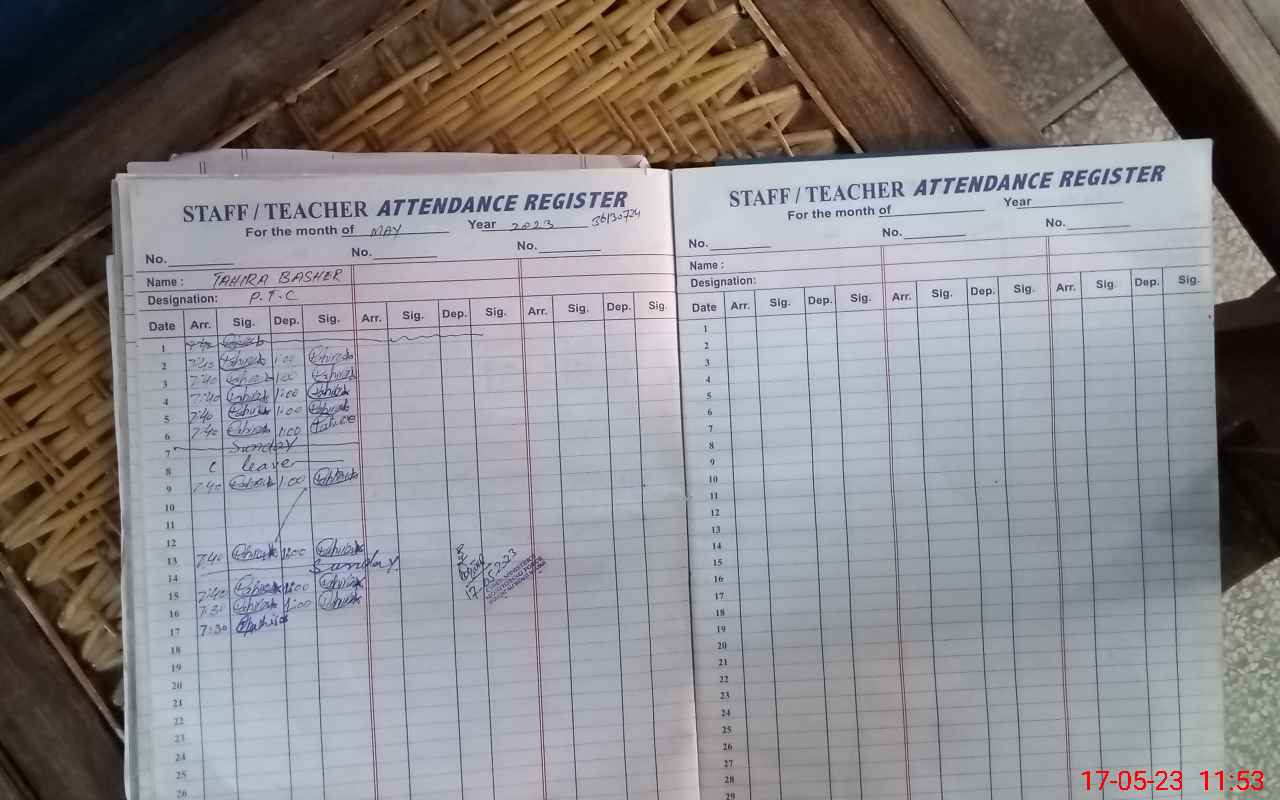 STAFF / TEACHER ATTENDANCE REGISTER
For the month of MAY Year 2023 36130724
No. No. No.
Name : TAHIRA BASHER
Designation: P.T.C
Date Arr. Sig. Dep. Sig. Arr. Sig. Dep. Sig. Arr. Sig. Dep. Sig.
1 7:40
2 7:40 1:00
3 7:40 1:00
4 7:40 1:00
5 7:40 1:00
6 7:40 1:00
7 Sunday
8 leave
9 7:40 1:00
10
11
12
13 7:40 1:00
14 Sunday
15 7:40 1:00
16 7:30 1:00
17 7:30
17-05-23
18
19
20
21
22
23
24
25
26
STAFF / TEACHER ATTENDANCE REGISTER
For the month of Year
No. No. No.
Name :
Designation:
Date Arr. Sig. Dep. Sig. Arr. Sig. Dep. Sig. Arr. Sig. Dep. Sig.
1
2
3
4
5
6
7
8
9
10
11
12
13
14
15
16
17
18
19
20
21
22
23
24
25
26
27
28
29
17-05-23 11:53